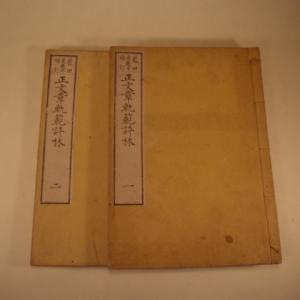 正文章軌範評林
一
正文章軌範評林
二